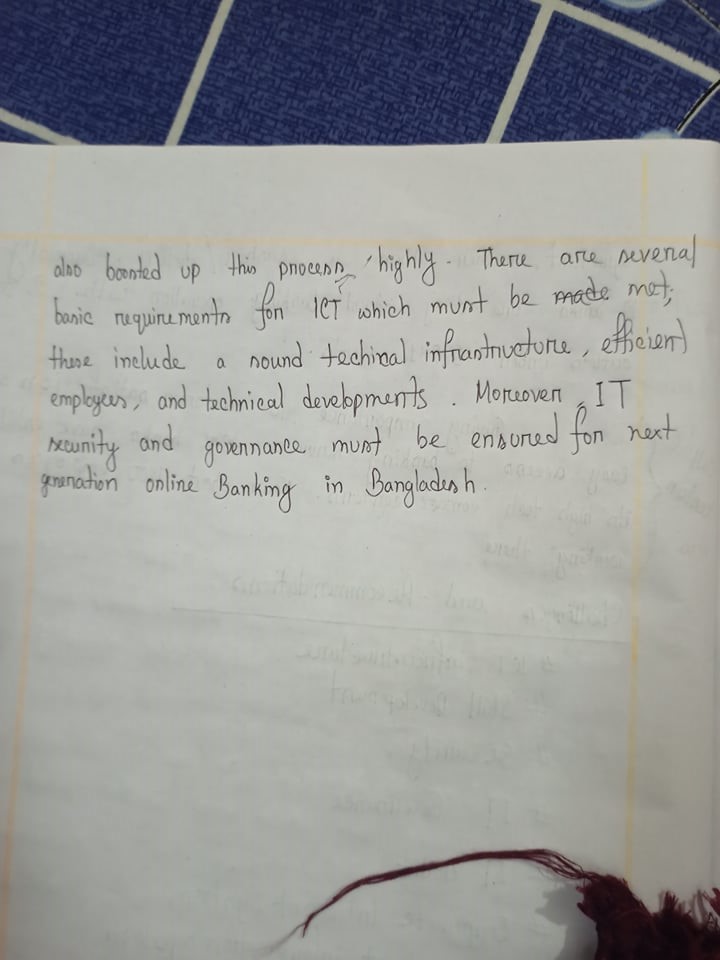 also boosted up this process, highly. There are several
basic requirements for ICT which must be made met;
these include a sound techincal infrastructure, efficient
employees, and technical developments. Moreover, IT
security and governance must be ensured for next
generation online Banking in Bangladesh.